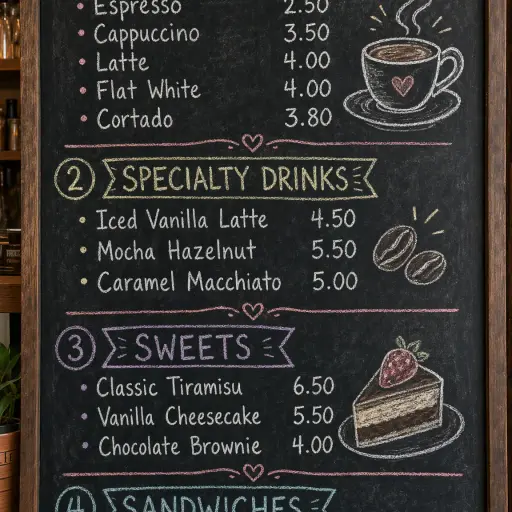 Espresso 2.50
Cappuccino 3.50
Latte 4.00
Flat White 4.00
Cortado 3.80
2 SPECIALTY DRINKS
Iced Vanilla Latte 4.50
Mocha Hazelnut 5.50
Caramel Macchiato 5.00
3 SWEETS
Classic Tiramisu 6.50
Vanilla Cheesecake 5.50
Chocolate Brownie 4.00
4 SANDWICHES